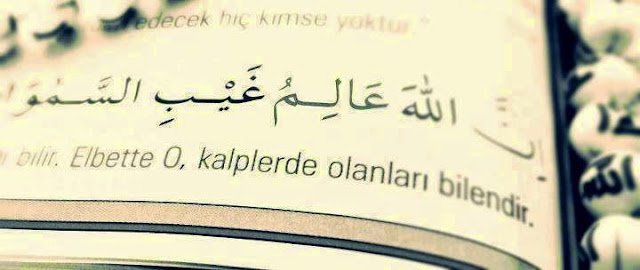 edecek hiç kimse yoktur."
اللهَ عَالِمُ غَيْبِ السَّمٰوَا
bilir. Elbette O, kalplerde olanları bilendir.
الله